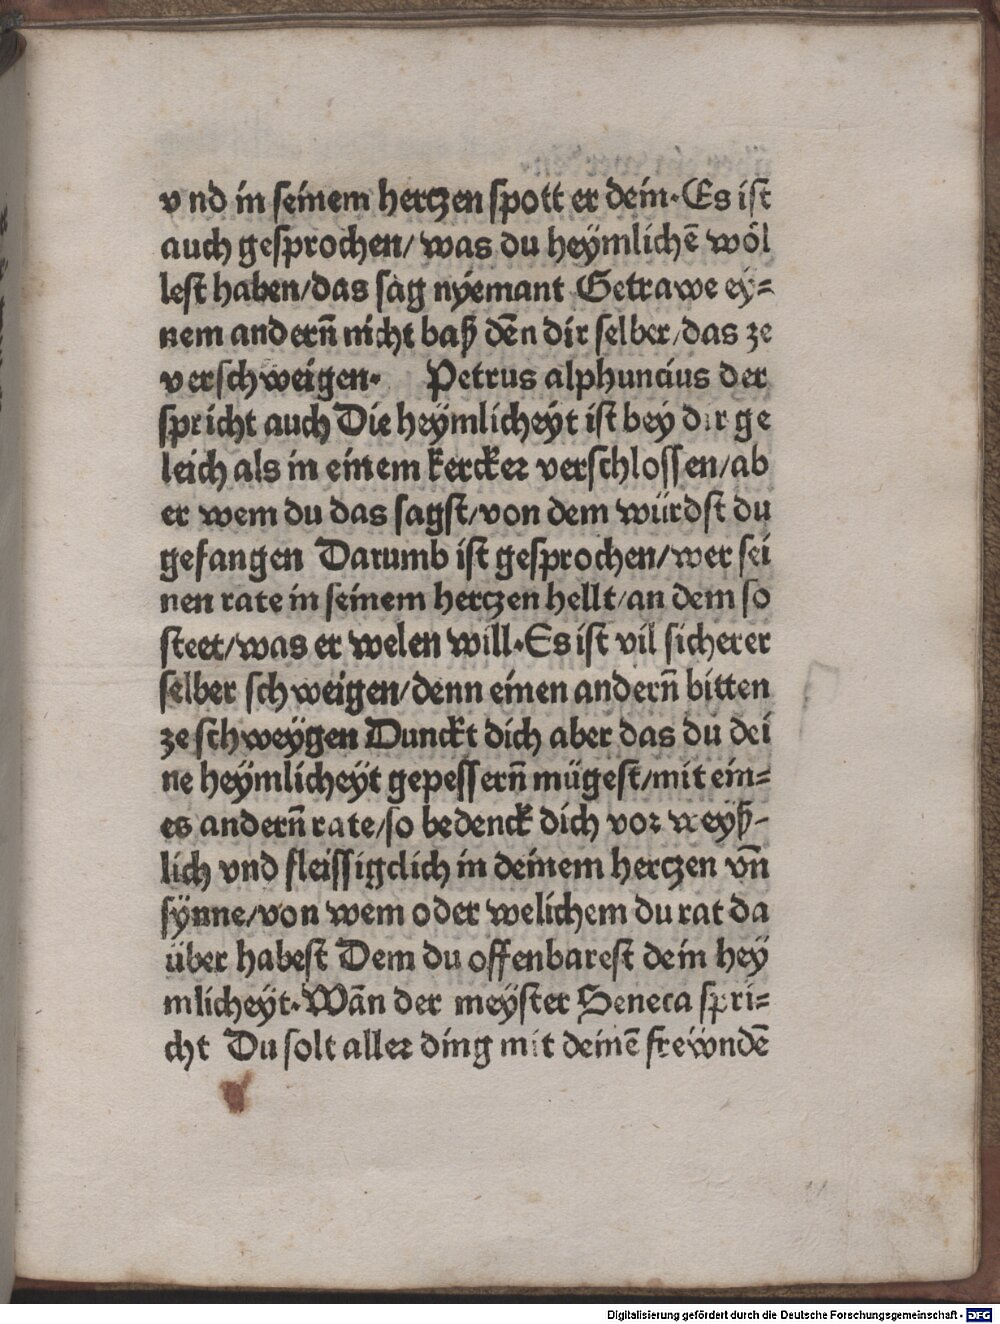 vnd in seinem hertzen spott er dein. Es ist
auch gesprochen/ was du heÿmlichē wöl
lest haben/das sag nyemant Getrawe eÿ=
nem anderñ nicht baß dēn dir selber/das ze
verschweigen. Petrus alphuncius der
spricht auch Die heÿmlicheÿt ist bey dir ge
leich als in einem kercker verschlossen/ab
er wem du das sagst/von dem würdst du
gefangen Darumb ist gesprochen/wer sei
nen rate in seinem hertzen hellt/an dem so
steet/was er welen will. Es ist vil sicherer
selber schweigen/denn einen anderñ bitten
ze schweÿgen Dunckt dich aber das du dei
ne heÿmlicheÿt gepesserñ mügest/mit ein=
es anderñ rate/so bedenck dich vor weÿß-
lich vnd fleissigclich in deinem hertzen vñ
sÿnne/von wem oder welichem du rat da
über habest Dem du offenbarest dein heÿ
mlicheÿt. Wān der meÿster Seneca spri=
cht Du solt aller ding mit deinē freẅndē
Digitalisierung gefördert durch die Deutsche Forschungsgemeinschaft - DFG